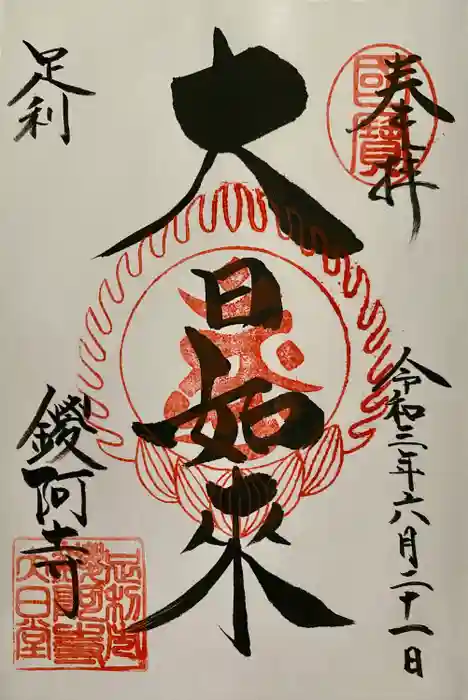 奉拝
國寶
令和三年六月二十一日
大日如来
足利
鑁阿寺
足利市
鑁阿寺
大日堂